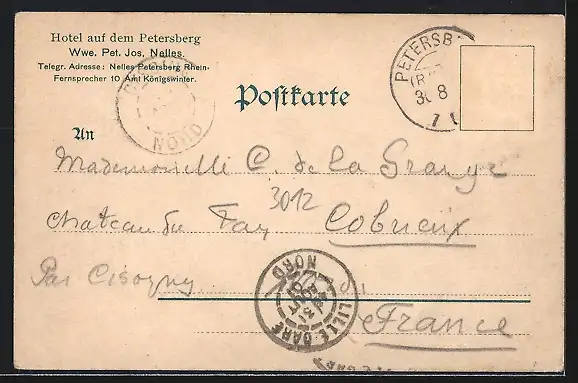 Hotel auf dem Petersberg
Wwe. Pet. Jos. Nelles.
Telegr. Adresse: Nelles Petersberg Rhein.
Fernsprecher 10 Amt Königswinter.
PETERSB
30 8
7
NORD
Postkarte
An
Mademoiselle C. de La Grange
3012
Chateau du Fay Cobrieux
Par Cisoyng
LILLE GARE
NORD
31
AOUT
France